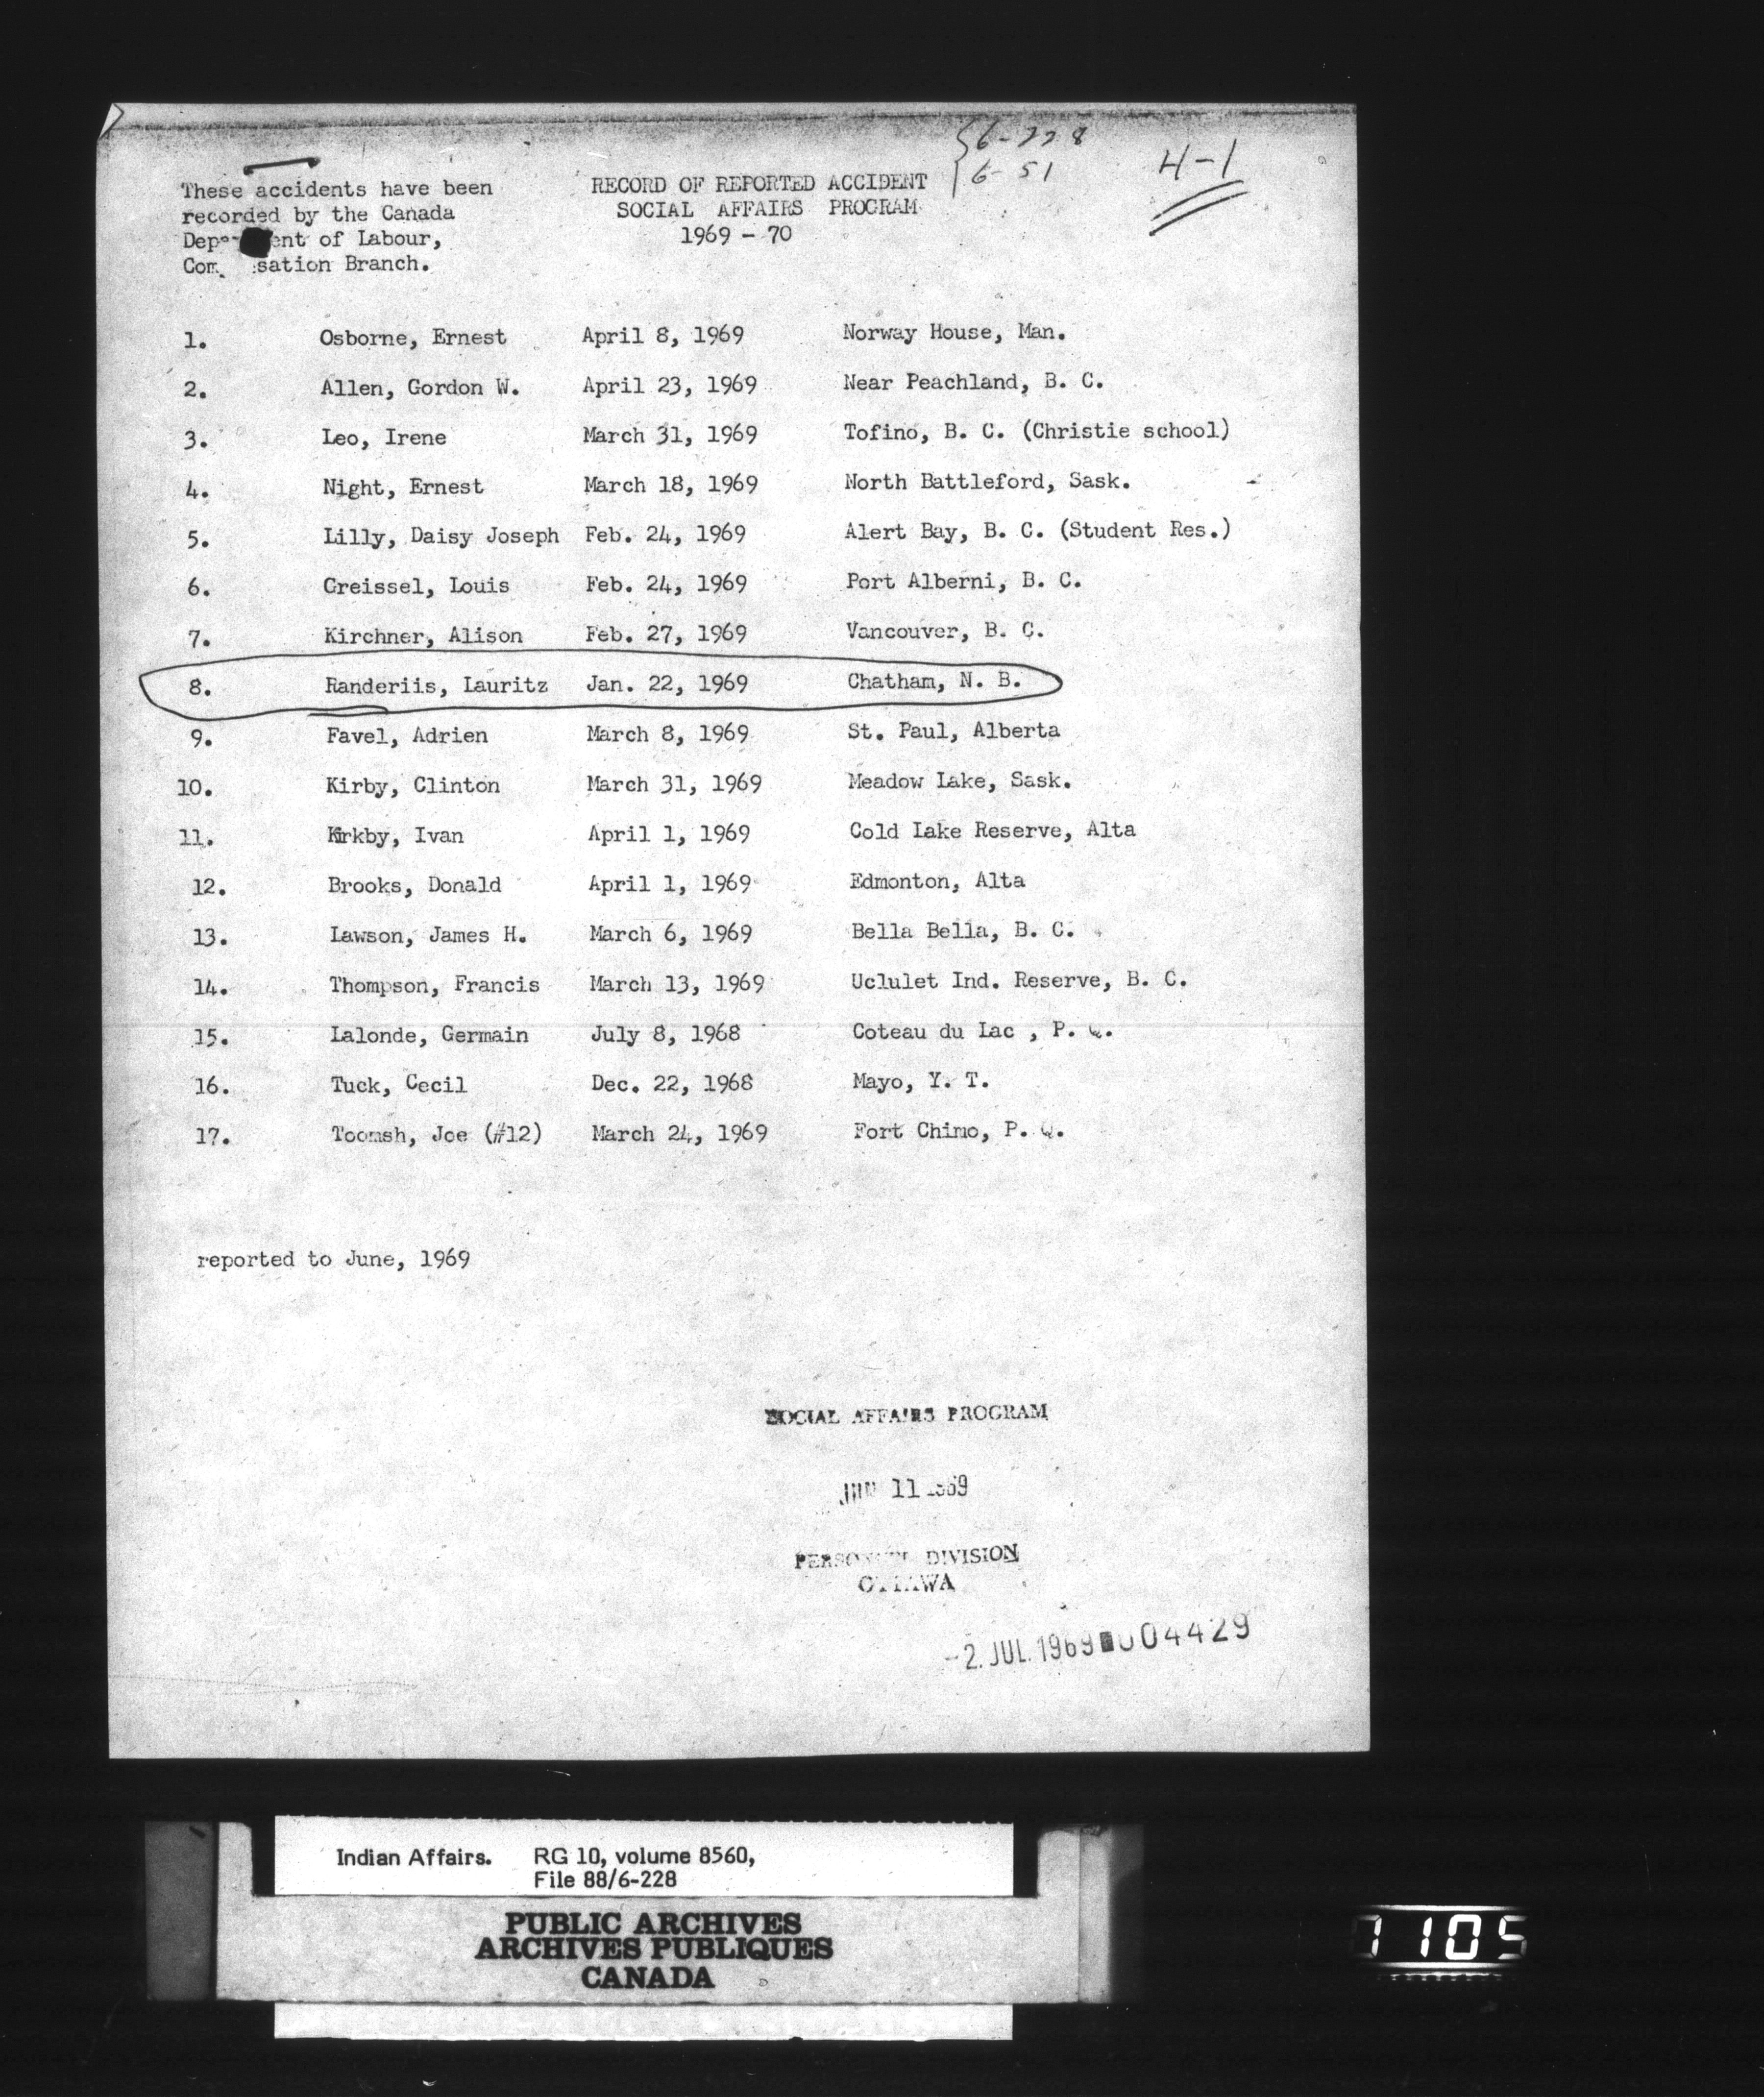 6-228
6-51
H-1
These accidents have been
recorded by the Canada
of Labour,
Branch.
RECORD OF REPORTED ACCIDENT
SOCIAL AFFAIRS PROGRAM
1969 - 70
1. Osborne, Ernest April 8, 1969 Norway House, Man.
2. Allen, Gordon W. April 23, 1969 Near Peachland, B. C.
3. Leo, Irene March 31, 1969 Tofino, B. C. (Christie school)
4. Night, Ernest March 18, 1969 North Battleford, Sask.
5. Lilly, Daisy Joseph Feb. 24, 1969 Alert Bay, B. C. (Student Res.)
6. Greissel, Louis Feb. 24, 1969 Port Alberni, B. C.
7. Kirchner, Alison Feb. 27, 1969 Vancouver, B. C.
8. Randeriis, Lauritz Jan. 22, 1969 Chatham, N. B.
9. Favel, Adrien March 8, 1969 St. Paul, Alberta
10. Kirby, Clinton March 31, 1969 Meadow Lake, Sask.
11. Kirkby, Ivan April 1, 1969 Cold Lake Reserve, Alta
12. Brooks, Donald April 1, 1969 Edmonton, Alta
13. Lawson, James H. March 6, 1969 Bella Bella, B. C.
14. Thompson, Francis March 13, 1969 Uclulet Ind. Reserve, B. C.
15. Lalonde, Germain July 8, 1968 Coteau du Lac , P. Q.
16. Tuck, Cecil Dec. 22, 1968 Mayo, Y. T.
17. Toomsh, Joe (#12) March 24, 1969 Fort Chimo, P. Q.
reported to June, 1969
SOCIAL AFFAIRS PROGRAM
JUN 11 1969
PERSONNEL DIVISION
OTTAWA
-2. JUL. 1969 004429
Indian Affairs. RG 10, volume 8560,
File 88/6-228
PUBLIC ARCHIVES
ARCHIVES PUBLIQUES
CANADA
1105